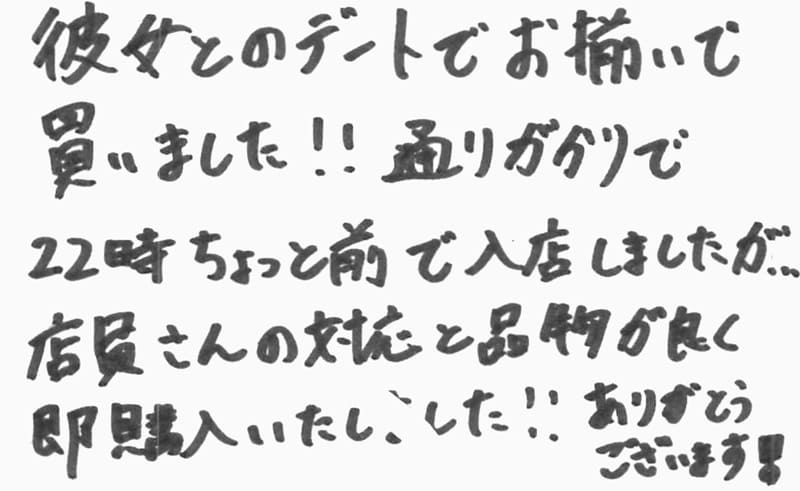 彼女とのデートでお揃いで
買いました!! 通りがかりで
22時ちょっと前で入店しましたが...
店員さんの対応と品物が良く
即購入いたし した!! ありがとう
ございます!